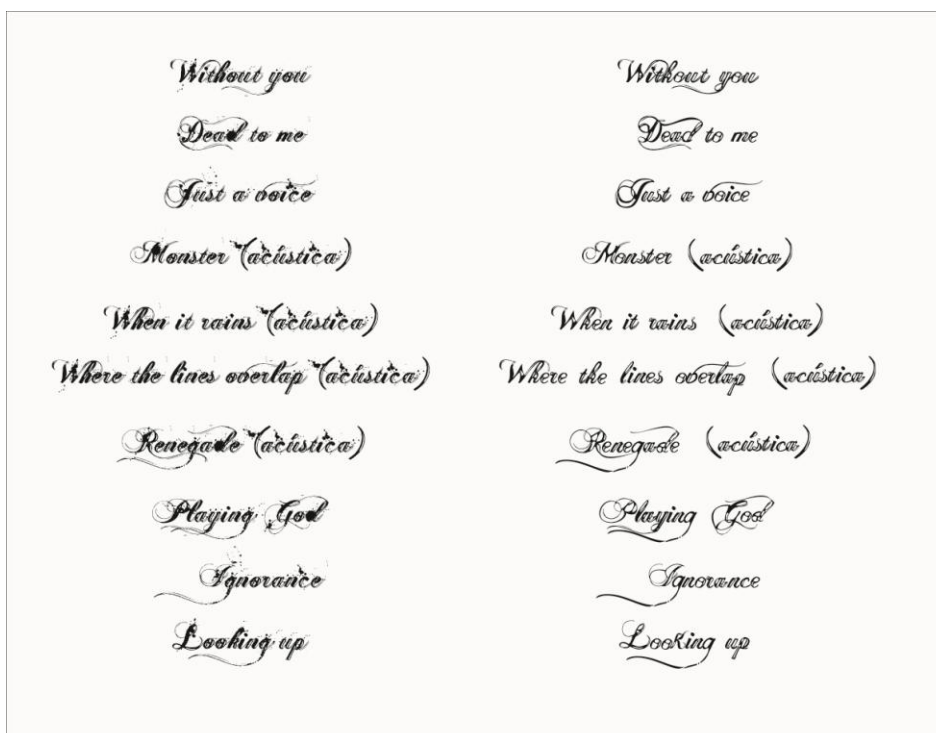 Without you
Dead to me
Just a voice
Monster (acústica)
When it rains (acústica)
Where the lines overlap (acústica)
Renegade (acústica)
Playing God
Ignorance
Looking up
Without you
Dead to me
Just a voice
Monster (acústica)
When it rains (acústica)
Where the lines overlap (acústica)
Renegade (acústica)
Playing God
Ignorance
Looking up